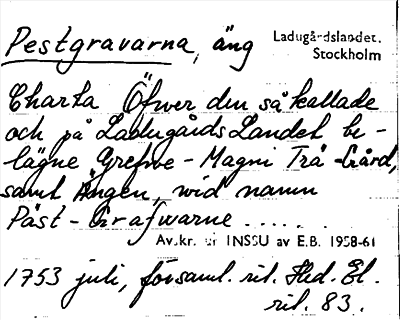 Pestgravarna, äng
Ladugårdslandet,
Stockholm
Charta Öfwer den så kallade
och på LadugårdsLandet be-
lägne Grefwe-Magni Trä-Gård,
samt Ängen, wid namn
Päst-Grafwarne......
Avskr. ur INSSU av E.B. 1958-61
1753 juli, församl. rit. Hed. El.
rit. 83.